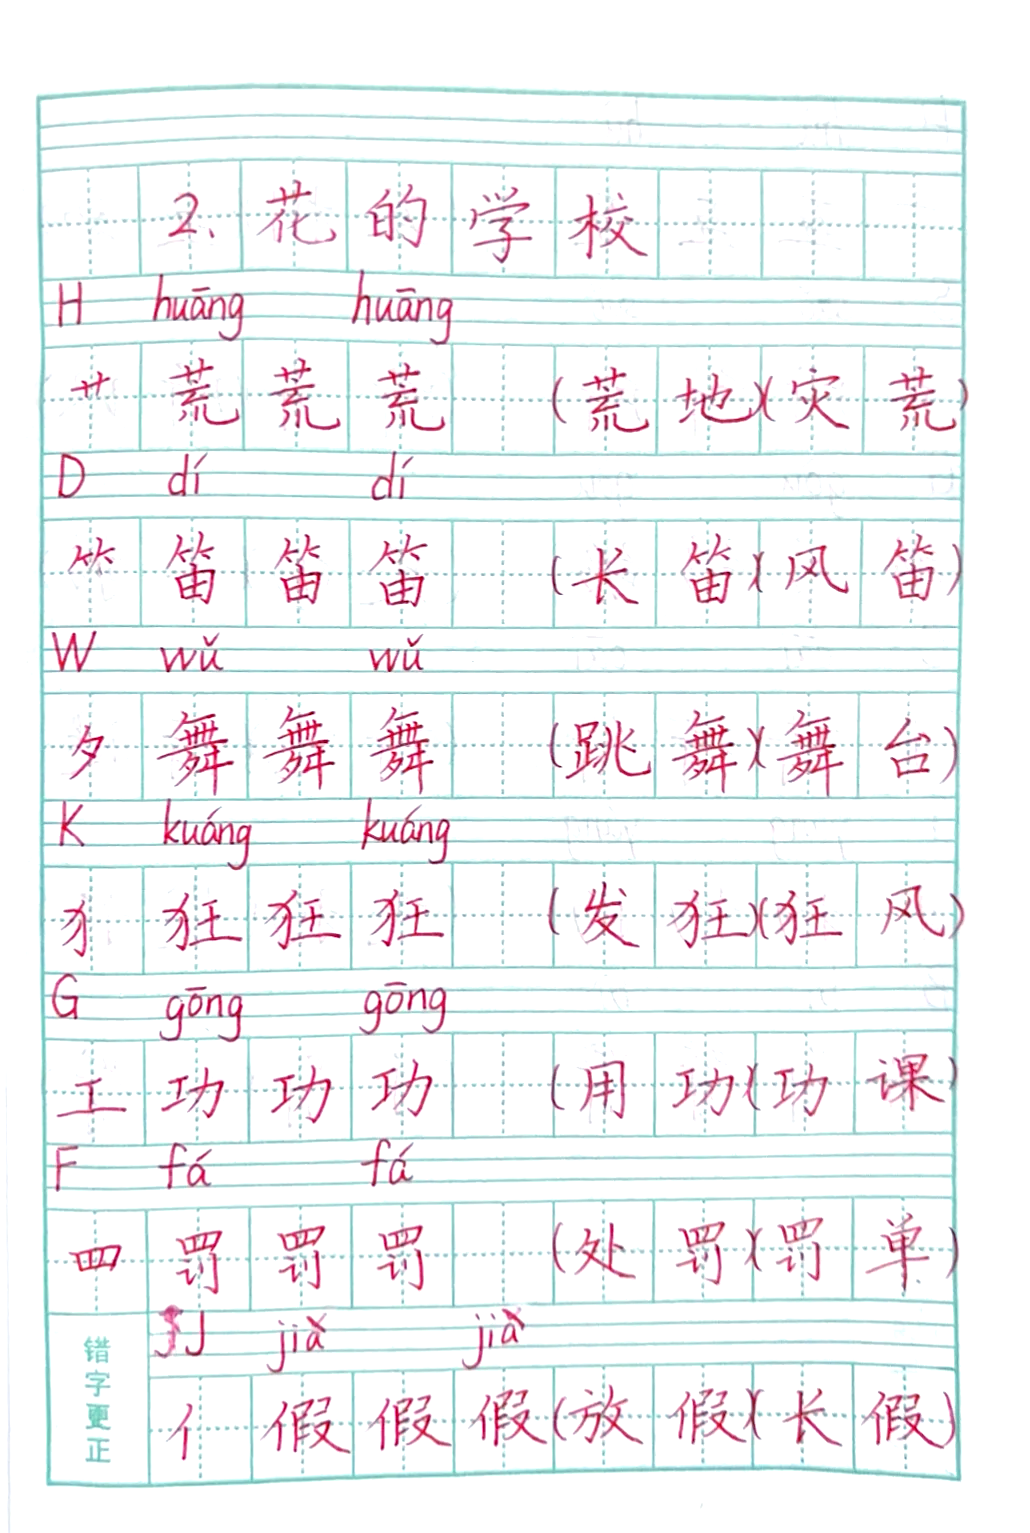 2、花的学校
H huāng huāng
艹 荒 荒 荒 (荒地)(灾荒)
D dí dí
⺮ 笛 笛 笛 (长笛)(风笛)
W wǔ wǔ
夕 舞 舞 舞 (跳舞)(舞台)
K kuáng kuáng
犭 狂 狂 狂 (发狂)(狂风)
G gōng gōng
工 功 功 功 (用功)(功课)
F fá fá
罒 罚 罚 罚 (处罚)(罚单)
J jià jià
错字更正
亻 假 假 假 (放假)(长假)